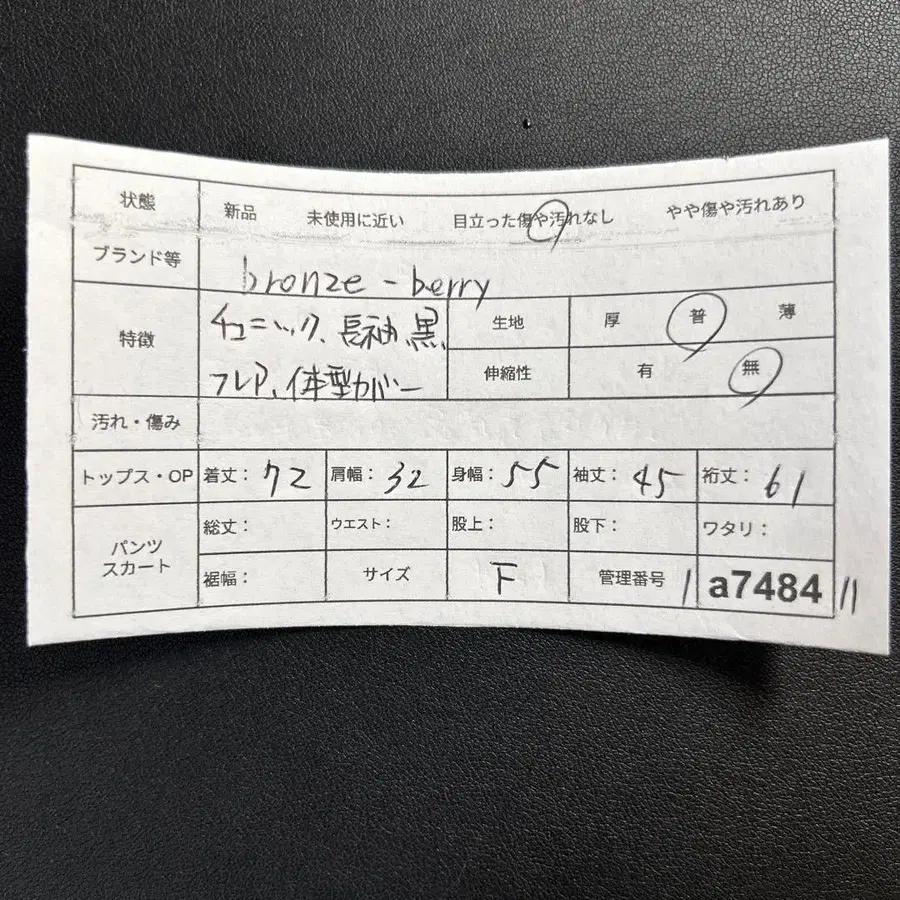 状態 新品 未使用に近い 目立った傷や汚れなし やや傷や汚れあり
ブランド等 bronze-berry
特徴 チュニック、長袖、黒、 生地 厚 普 薄
フレア、体型カバー 伸縮性 有 無
汚れ・傷み
トップス・OP 着丈：72 肩幅：32 身幅：55 袖丈：45 裄丈：61
パンツ 総丈： ウエスト： 股上： 股下： ワタリ：
スカート 裾幅： サイズ F 管理番号 a7484